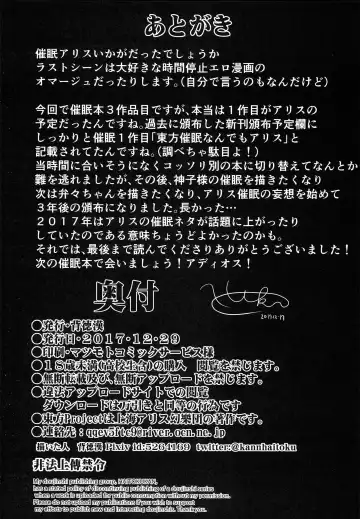 あとがき
催眠アリスいかがだったでしょうか
ラストシーンは大好きな時間停止エロ漫画の
オマージュだったりします。(自分で言うのもなんだけど)
今回で催眠本3作品目ですが、本当は1作目がアリスの
予定だったんですね。過去に頒布した新刊頒布予定欄に
しっかりと催眠1作目「東方催眠なんでもアリス」と
記載されてたんですね。(調べちゃ駄目よ!)
当時間に合いそうになくコッソリ別の本に切り替えてなんとか
難を逃れましたが、その後、神子様の催眠を描きたくなり
次は弁々ちゃんを描きたくなり、アリス催眠の妄想を始めて
3年後の頒布になりました。長かった…
2017年はアリスの催眠ネタが話題に上がったり
していたのである意味ちょうどよかったのかも。
それでは、最後まで読んでくださりありがとうございました!
次の催眠本で会いましょう!アディオス!
奥付
●発行・背徳漢
●発行日・2017・12・29
●印刷・マツモトコミックサービス様
●18歳未満(高校生含)の購入 閲覧を禁じます。
●無断転載及び、無断アップロードを禁じます。
●違法アップロードサイトでの閲覧
ダウンロードは万引と同等の行為です
●東方Projectは上海アリス幻樂団の著作です。
●連絡先:
描いた人 背徳漢 Pixiv id:5264169 twitter:@kannhaitoku
非法上傳禁令
My doujinshi publishing group, HAITOKUKAN,
has a stated policy of discontinuing publishing of a doujinshi series
when a work is uploaded for public consumption without my permission.
Please do not upload this file. I ask for your help in support
my efforts to publish new and interesting doujinshi. Thank you.